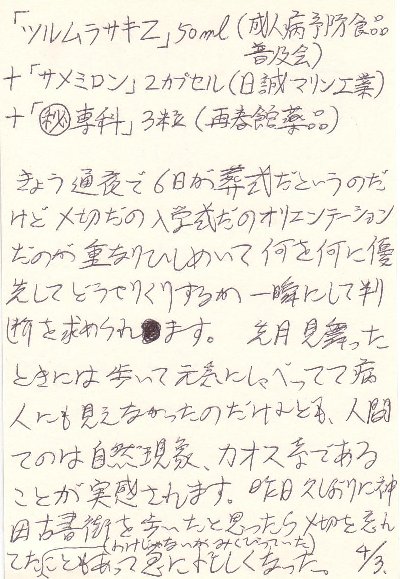 「ツルムラサキZ」50ml(成人病予防食品
普及会)
+「サメミロン」2カプセル(日誠マリン工業)
+「㊙専科」3粒(再春館薬品)
きょう通夜で6日が葬式だというのだ
けど〆切だの入学式だのオリエンテーション
だのが重なりひしめいて何を何に優
先してどうやりくりするか一瞬にして判
断を求められます。先月見舞った
ときには歩いて元気にしゃべってて病
人にも見えなかったのだけれども、人間
てのは自然現象、カオス系である
ことが実感されます。昨日久しぶりに神
田古書街を歩いたと思ったら〆切を忘れ
てた(わけじゃないがみくびっていた)
こともあって急に忙しくなった。4/3.